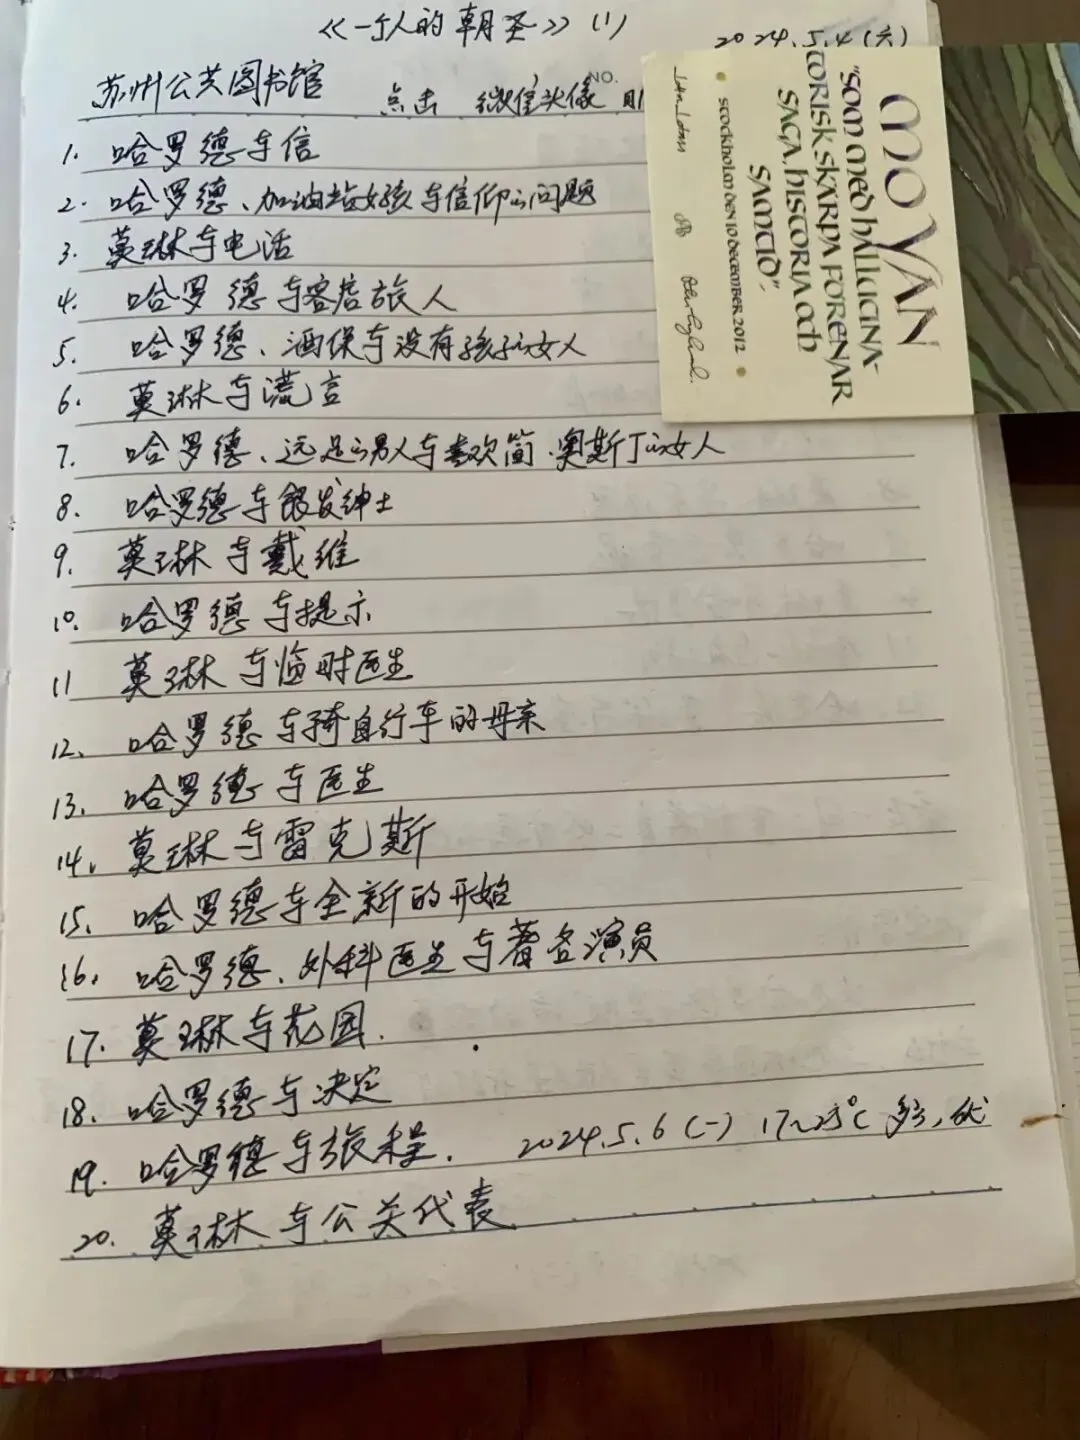 《一个人的朝圣》(1)
2024.5.4(六)
苏州公共图书馆 点击 微信头像
NO.
1. 哈罗德与信
2. 哈罗德、加油站女孩与信仰的问题
3. 莫琳与电话
4. 哈罗德与客店旅人
5. 哈罗德、酒保与没有孩子的女人
6. 莫琳与谎言
7. 哈罗德、远足的男人与喜欢简.奥斯丁的女人
8. 哈罗德与银发绅士
9. 莫琳与戴维
10. 哈罗德与提示
11 莫琳与临时医生
12. 哈罗德与骑自行车的母亲
13. 哈罗德与医生
14. 莫琳与雷克斯
15. 哈罗德与全新的开始
16. 哈罗德、外科医生与著名演员
17. 莫琳与花园.
18. 哈罗德与决定
19. 哈罗德与旅程. 2024.5.6(一) 17~25℃ 多云,优
20. 莫琳与公关代表
MO YAN
"SOM MED HALLUCINA-
TORISK SKÄRPA FÖRENAR
SAGA, HISTORIA OCH
SAMTID",
STOCKHOLM DEN 10 DECEMBER 2012